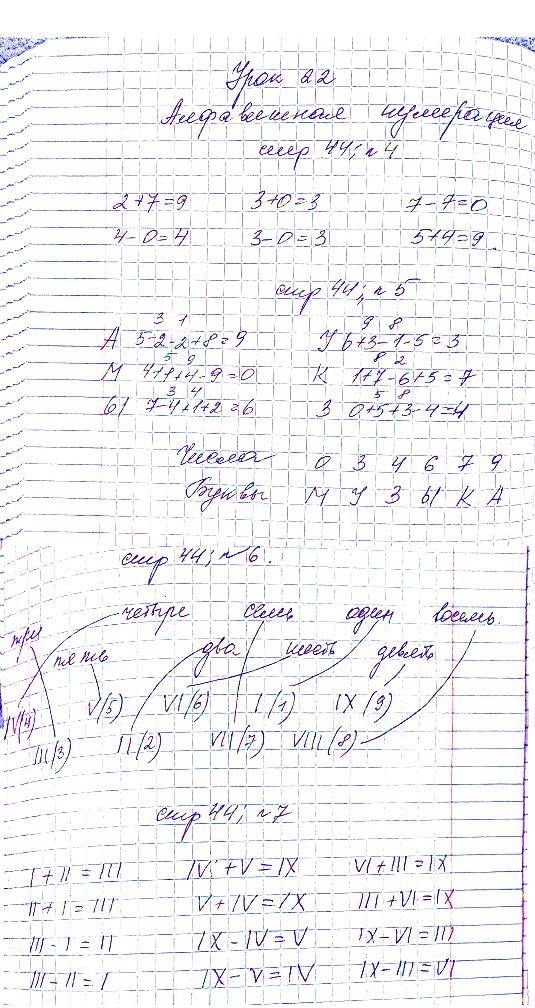 Урок 22
Алфавитная нумерация
стр 44; n 4
2+7=9 3+0=3 7-7=0
4-0=4 3-0=3 5+4=9.
стр 44; n 5
3 1 9 8
А 5-2-2+8=9 У 6+3-1-5=3
5 9 8 2
М 4+1+4-9=0 К 1+7-6+5=7
3 4 5 8
Ы 7-4+1+2=6 З 0+5+3-4=4
Числа 0 3 4 6 7 9.
Буквы М У З Ы К А
стр 44; n 6.
четыре семь один восемь
три пять два шесть девять
IV(4) V(5) VI(6) I(1) IX(9)
III(3) II(2) VII(7) VIII(8)
стр 44; n 7
I+II=III IV+V=IX VI+III=IX
II+I=III V+IV=IX III+VI=IX
III-I=II IX-IV=V IX-VI=III
III-II=I IX-V=IV IX-III=VI